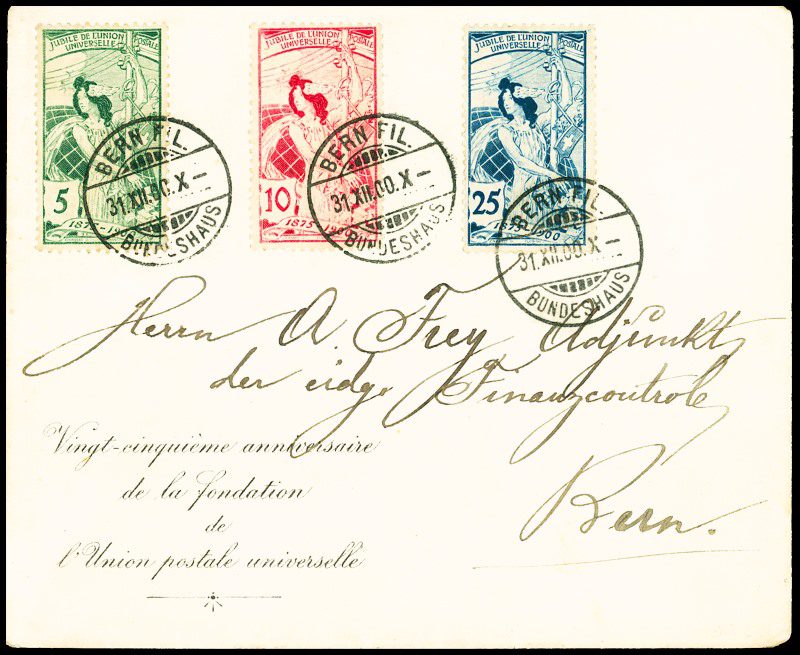 JUBILÉ DE L'UNION
UNIVERSELLE POSTALE
5
JUBILÉ DE L'UNION
UNIVERSELLE POSTALE
10
1875-1900
JUBILÉ DE L'UNION
UNIVERSELLE POSTALE
25
1875-1900
BERN FIL.
31.XII.00.X–
BUNDESHAUS
BERN FIL.
31.XII.00.X–
BUNDESHAUS
BERN FIL.
31.XII.00.X–
BUNDESHAUS
Herrn A. Frey Adjunkt
der eidg. Finanzcontrole
Bern.
Vingt-cinquième anniversaire
de la fondation
de
l'Union postale universelle